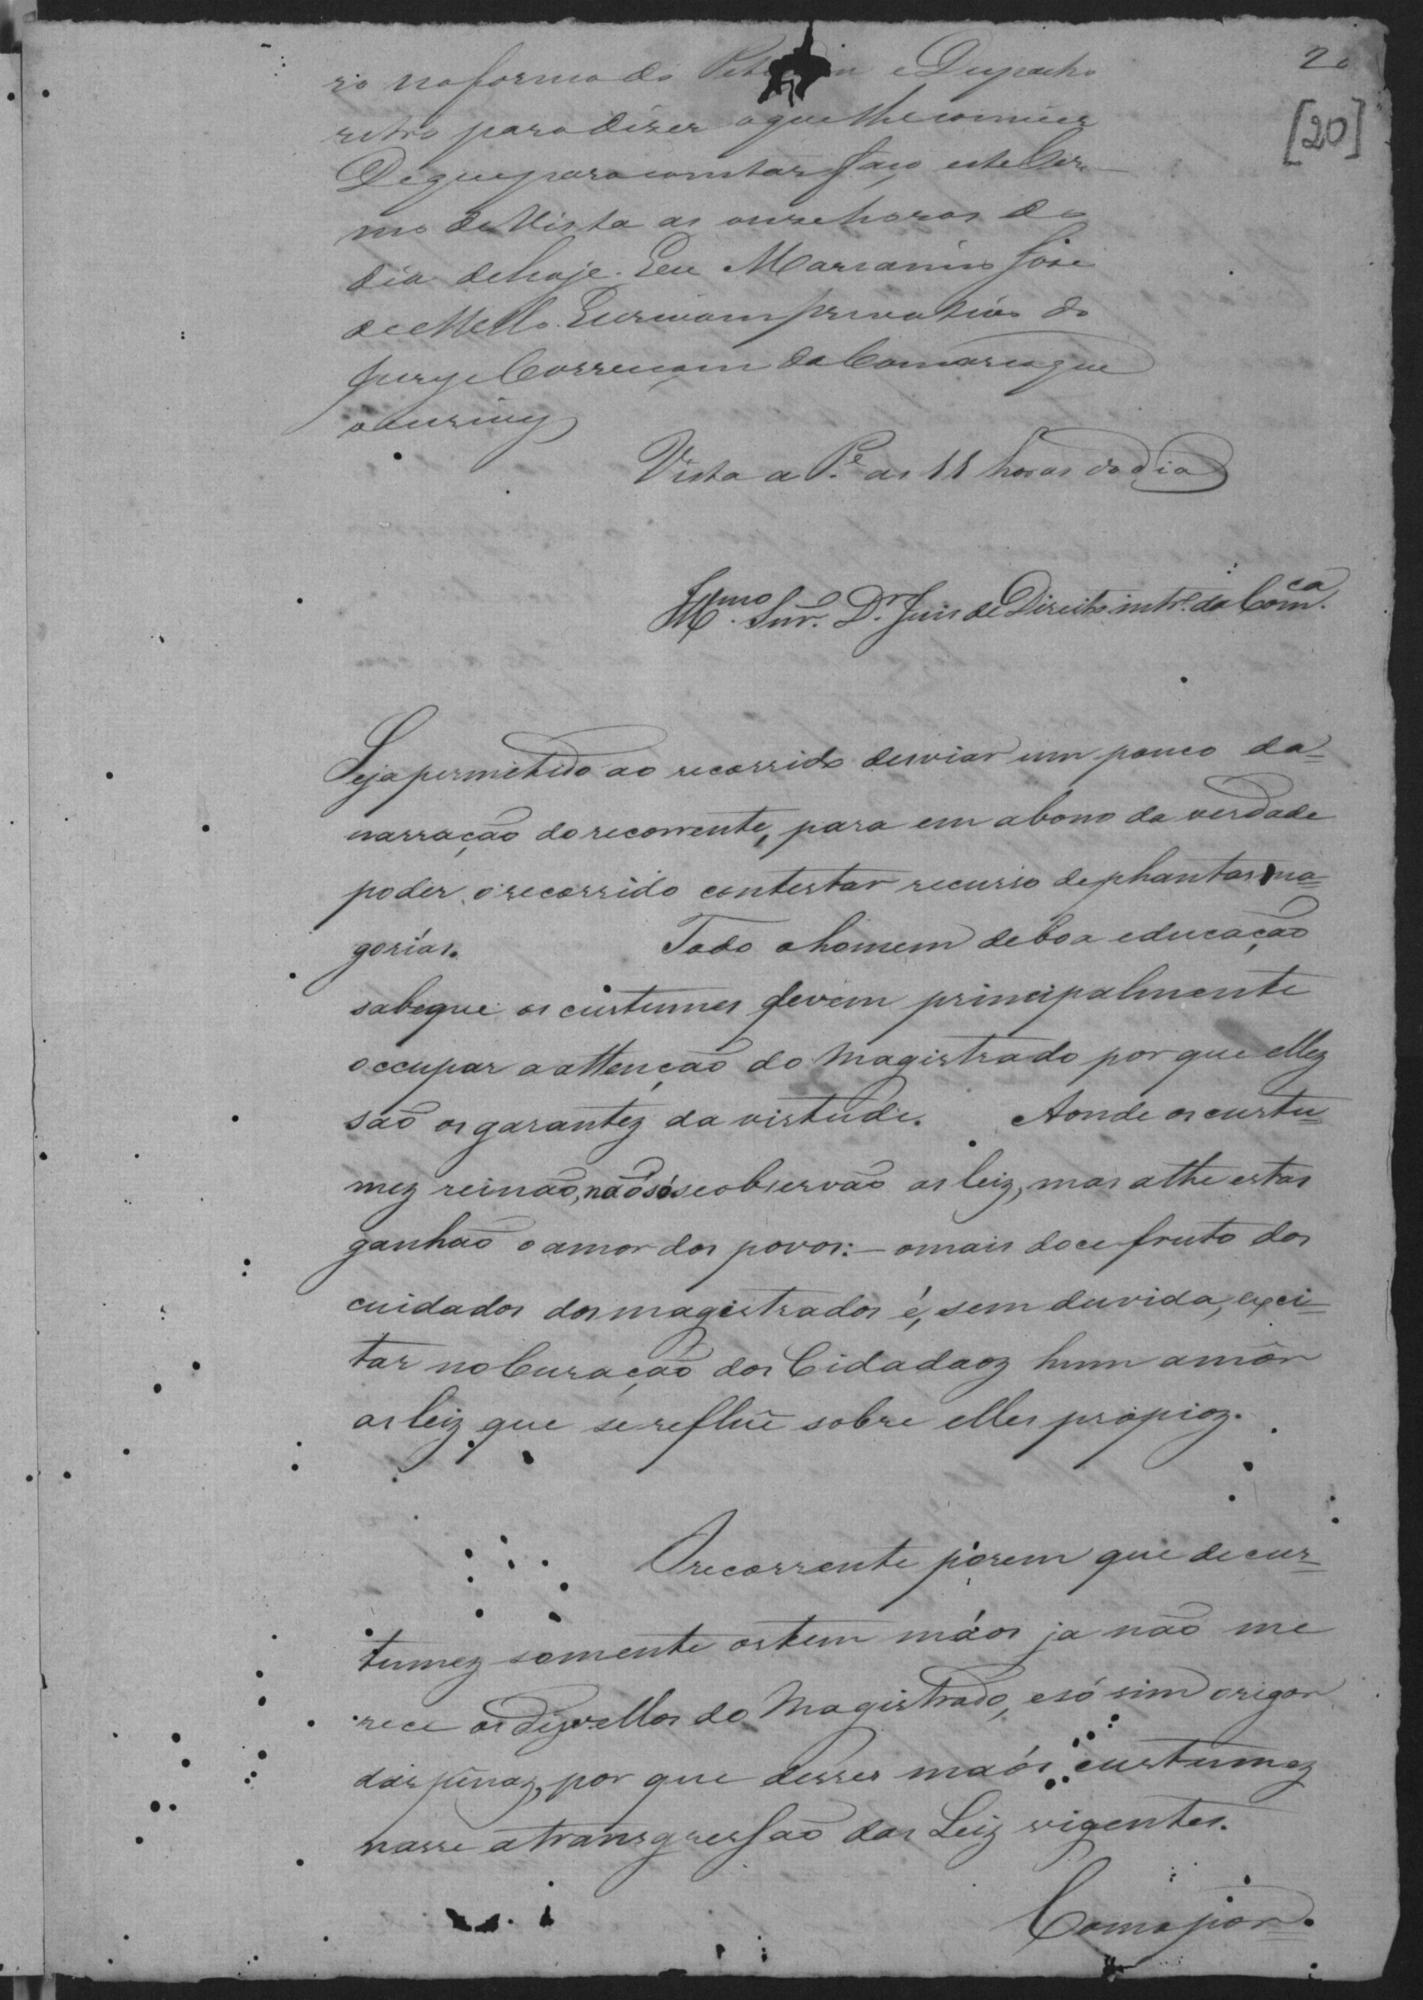 20
[20]
rio na forma da Petição e Despacho
retro para dizer o que lhe convier
De que para constar faço este Ter-
mo de Vista as onze horas do
dia de hoje. Eu Marianno José
de Mello Escrivam privativo do
Jury e Correiçam da Comarca que
o escrivy
Vista a P.e as 11 horas do dia
Illmo. Snr. Dr. Juis de Direito intr.o da Comca.
Seja permitido ao recorrido desviar um pouco da=
narração do recorrente, para em abono da verdade
poder o recorrido contestar recurso de phantasma=
gorías. Todo o homem de boa educação
sabe que os custumes devem principalmente
occupar a attenção do Magistrado por que ellez
saõ os garantez da virtude. Aonde os custu=
mez reinaõ, naõ só se observaõ as leiz, mas athe estas
ganhaõ o amor dos povos: — o mais doce fruto dos
cuidados dos magistrados é, sem duvida, exci=
tar no Curação dos Cidadaoz hum amôr
as leiz que se reflue sobre elles propioz.
O recorrente porem que de cus=
tumez somente os tem máos ja naõ me
rece os disvellos do Magistrado, e só sim o rigor
das penaz, por que desses maós custumez
nasse a transgressaõ das Leiz vigentes.
Como por=